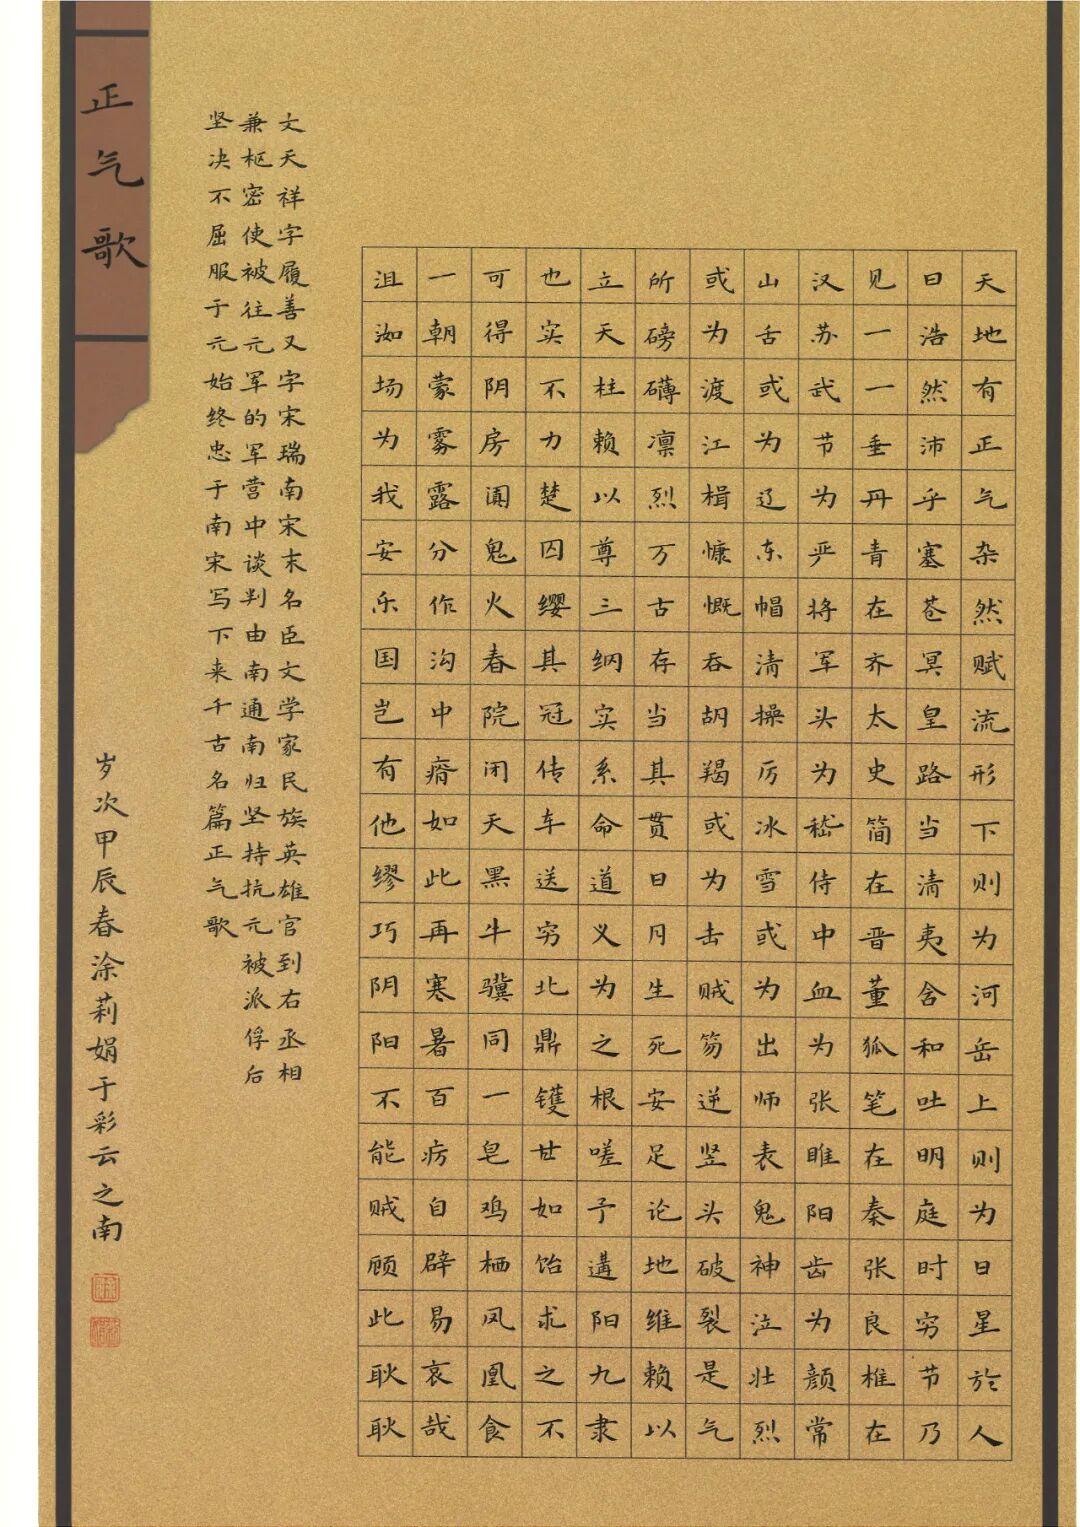 天地有正气杂然赋流形下则为河岳上则为日星於人
曰浩然沛乎塞苍冥皇路当清夷含和吐明庭时穷节乃
见一一垂丹青在齐太史简在晋董狐笔在秦张良椎在
汉苏武节为严将军头为嵇侍中血为张睢阳齿为颜常
山舌或为辽东帽清操厉冰雪或为出师表鬼神泣壮烈
或为渡江楫慷慨吞胡羯或为击贼笏逆竖头破裂是气
所磅礴凛烈万古存当其贯日月生死安足论地维赖以
立天柱赖以尊三纳实系命道义为之根嗟予遘阳九隶
也实不力楚囚缨其冠传车送穷北鼎镬甘如饴求之不
可得阴房阒鬼火春院闭天黑牛骥同一皂鸡栖凤凰食
一朝蒙雾露分作沟中瘠如此再寒暑百疠自辟易哀哉
沮洳场为我安乐国岂有他缪巧阴阳不能贼顾此耿耿
文天祥字履善又字宋瑞南宋末名臣文学家民族英雄官到右丞相
兼枢密使被往元军的军营中谈判由南通南归坚持抗元被派俘后
坚决不屈服于元始终忠于南宋写下来千古名篇正气歌
正气歌
岁次甲辰春涂莉娟于彩云之南